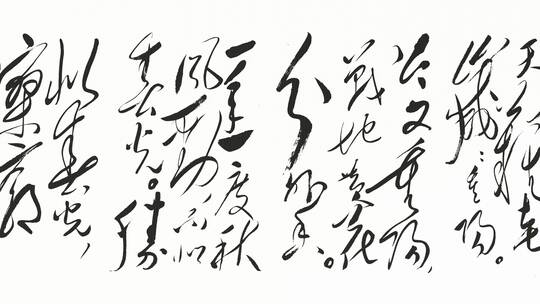 天难老
岁〻重阳。
今又重阳，
戰地黄花
分外香。
一年一度秋
风劲，不似
春光。胜
似春光，
寥廓